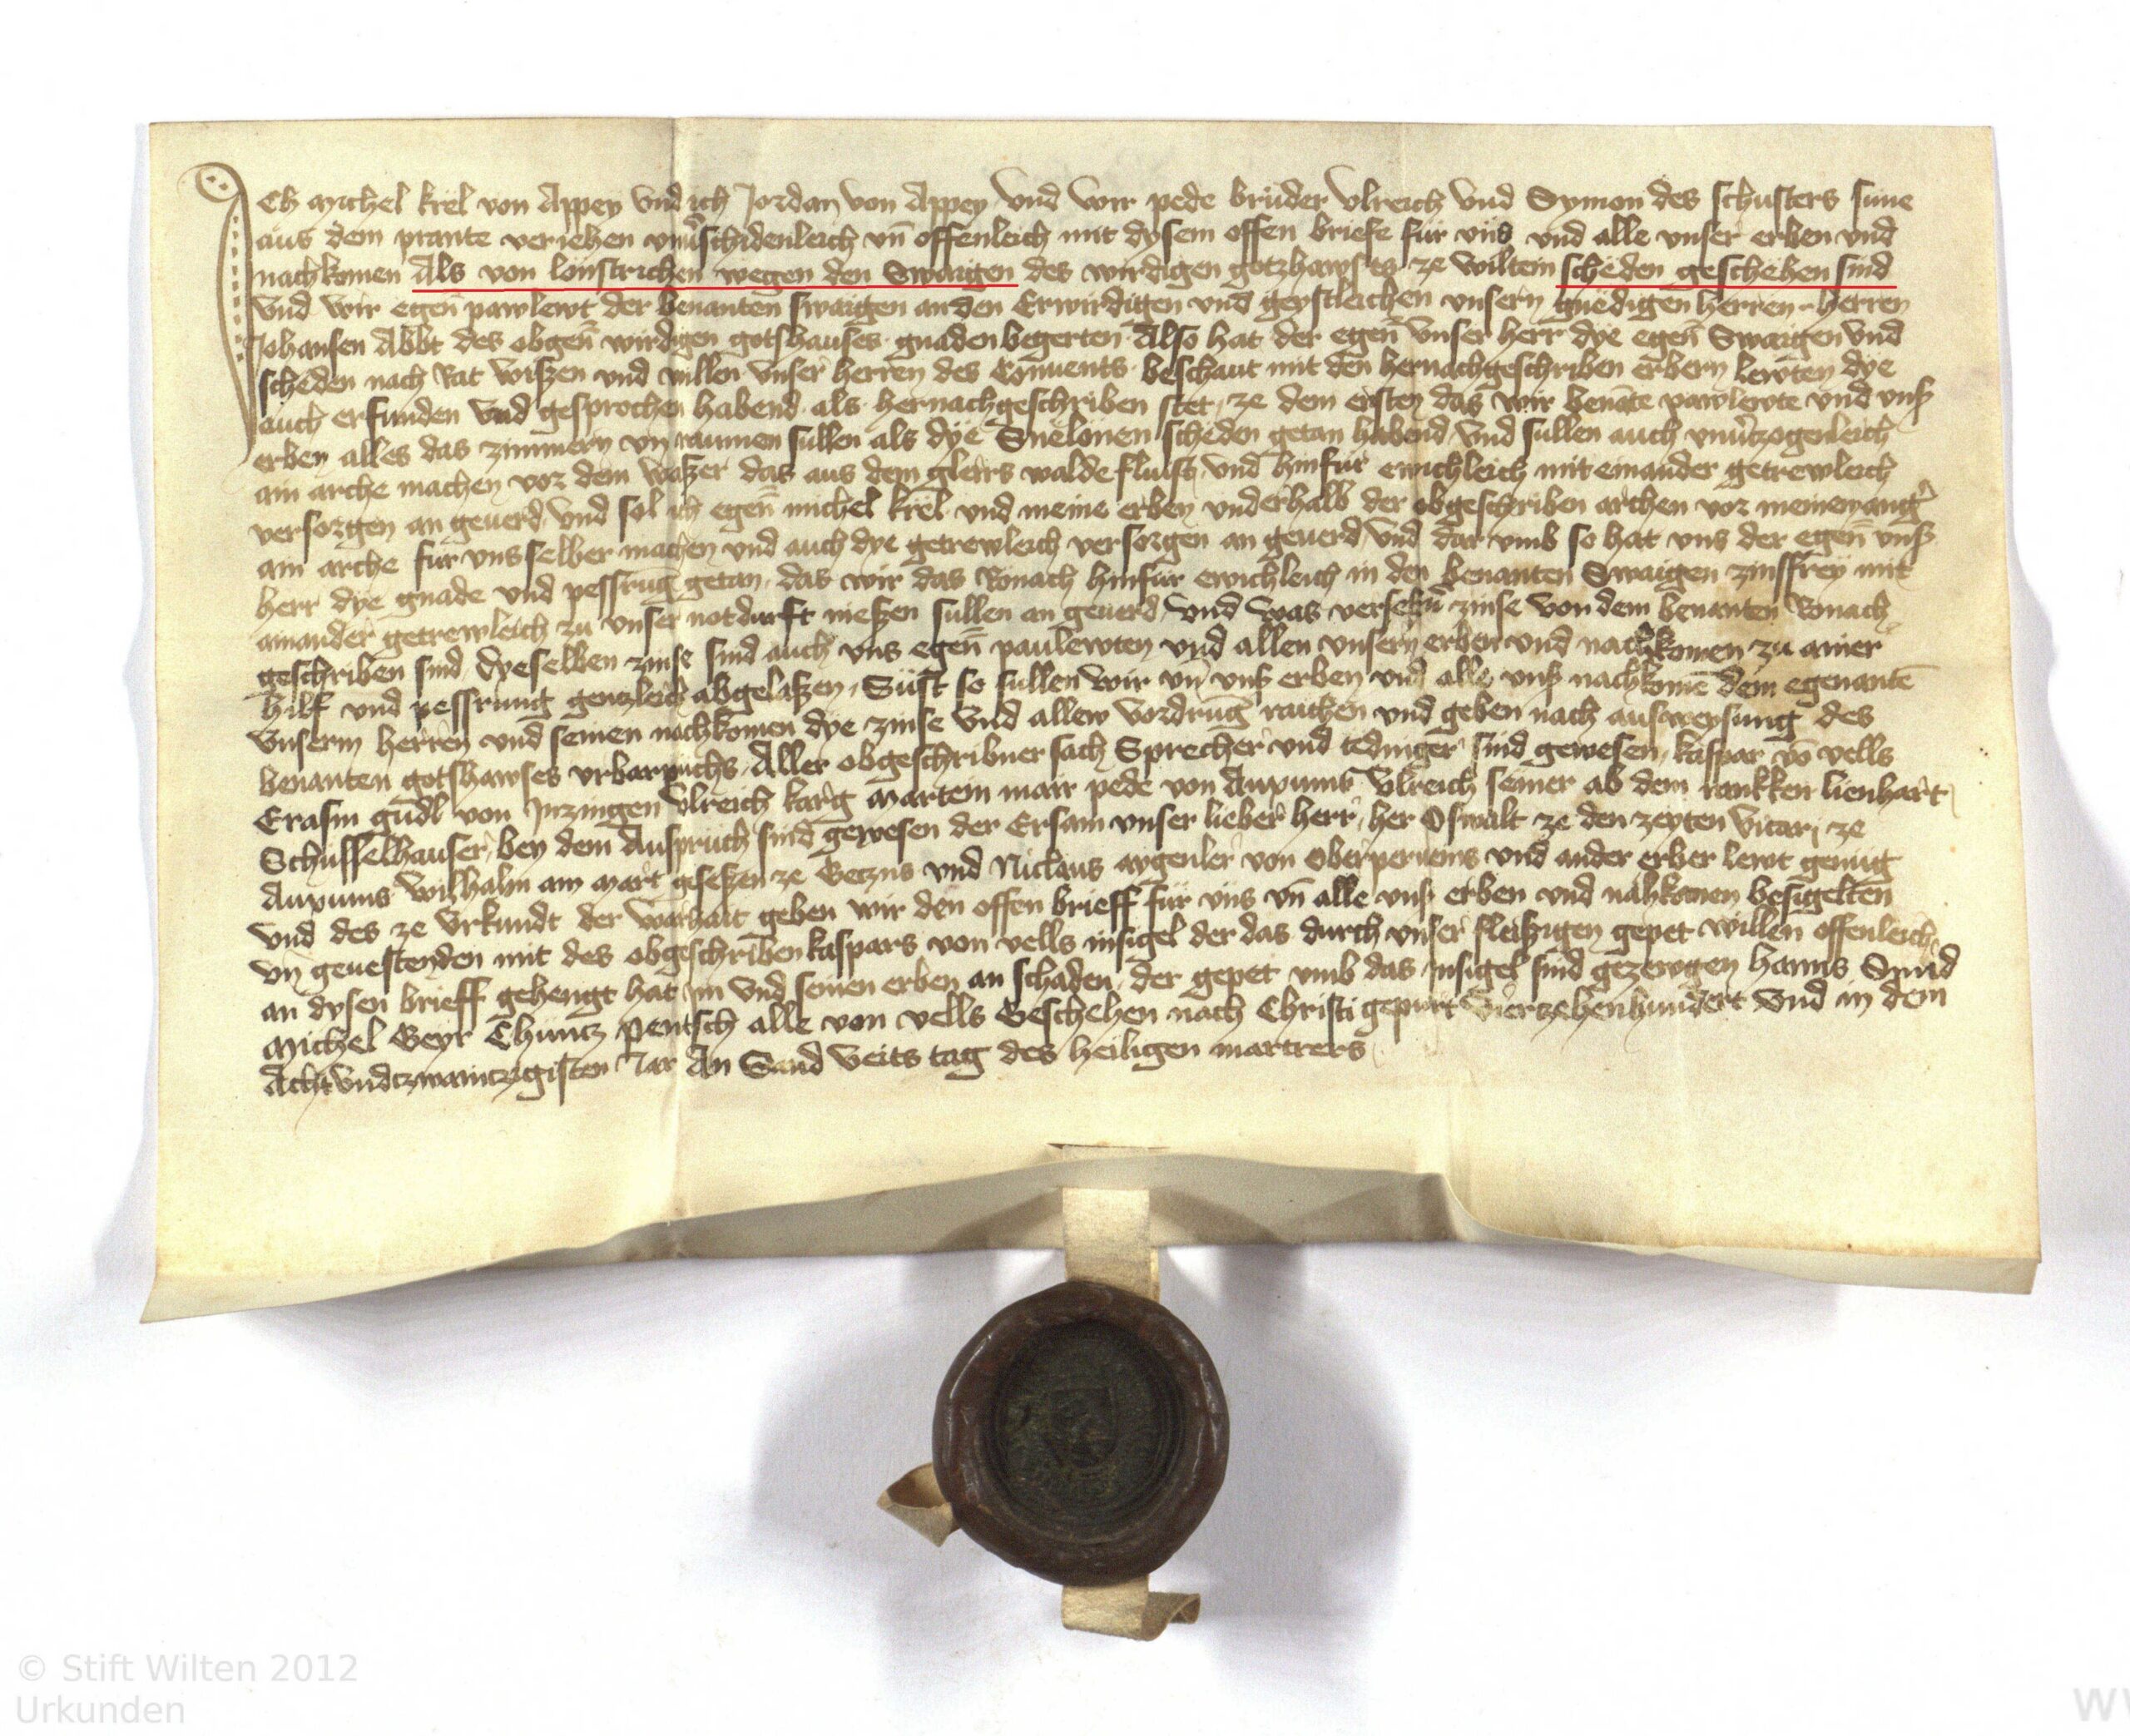 Ich Michel krel von Appen vnd ich Jordan von Appen vnd wir pede brüder vlreich vnd Symon des schusters süne
aus dem prante veriehen vnuerschidenleich vn̄ offenleich mit dysem offen briefe für vns vnd alle vnser erben vnd
nachkomen Als von lönstrichen wegen den Swaigen des wirdigen gotzhawses ze wiltein scheden gescheben sind
Vnd wir egen̄ pawlewt der benanten swaigen an den Erwirdigen vnd geystleichen vnsern gnedigen herren herren
Johansen Abbt des obgen̄ wirdigen gotshauses gnaden begerten Also hat der egen̄ vnser herr dye egen̄ Swaigen vnd
scheden nach Rat wißen vnd willen vnser herren des Conuents beschaut mit den hernachgeschriben erbern lewten dye
auch erfunden vnd gesprochen habend als hernachgeschriben stet ze dem ersten das wir benāte pawlewte vnd vnß
erben alles das zimmern vn̄ raumen sullen als dye Snelönen scheden getan habend vnd sullen auch vnuerzogenleich
ain arche machen vor dem waßer das aus dem gleirs walde flußt vnd hinfür ewichleich mit einander getrewleich
versorgen an geuerd vnd sol ich egen̄ michel krel vnd meine erben vnderhalb der obgeschriben archen vor meinem anger
ain arche für vns selber machen vnd auch dye getrewleich versorgen an geuerd vnd dar vmb so hat vns der egen̄ vnß
herr dye gnade vnd pessrūg getan das wir das Ronach hinfür ewichleich in den benanten Swaigen zinsfrey mit
ainander getrewleich zu vnser notdurft nießen sullen an geuerd vnd was zinse von dem benanten Ronach
geschriben sind dyeselben zinse sind auch vns egen̄ paulewten vnd allen vnsern erben vnd nachkomen zu ainer
hilf vnd pessrung genzleich abgelaßen Süst so sullen wir vn̄ vnß erben vnd alle vnß nachkomē dem egenantē
Vnserm herren vnd seinen nachkomen dye zinse vnd allew vordrūg raichen vnd geben nach ausweysung des
benanten gotshawses vrbarpuchs Aller obgeschribner sach Sprecher vnd tedinger sind gewesen kaspar vō vells
Erasm gudl von Inzingen vlreich karg Martein mair pede von Auxums vlreich seiner ab dem rankken lienhart
Schusselhauser bey dem Auspruch sind gewesen der Ersam vnser lieber herr her Oswalt ze den zeyten vicari ze
Auxums Wilhalm am Mart geseßen ze Geczns vnd Niclaus aygenler von Oberperuems vnd ander erber lewt genug
vnd des ze vrkundt der warhait geben wir den offen brieff für vns vn̄ alle vnß erben vnd nahkomen besigelten
vn̄ geuestenden mit des obgeschriben kaspars von vells insigel der das durch vnser fleißigen gepet willen offenleich
an dysen brieff gehengt hat im vnd seinen erben an schaden der gepet vmb das insigel sind gezewgen hanns Smid
Michel Geyr Chüncz pentsch alle von vells Geschehen nach Christi gepurt vierzehenhundert vnd in dem
Acht vndczwainczigisten Jar An Sand veits tag des heiligen martrers
© Stift Wilten 2012
Urkunden